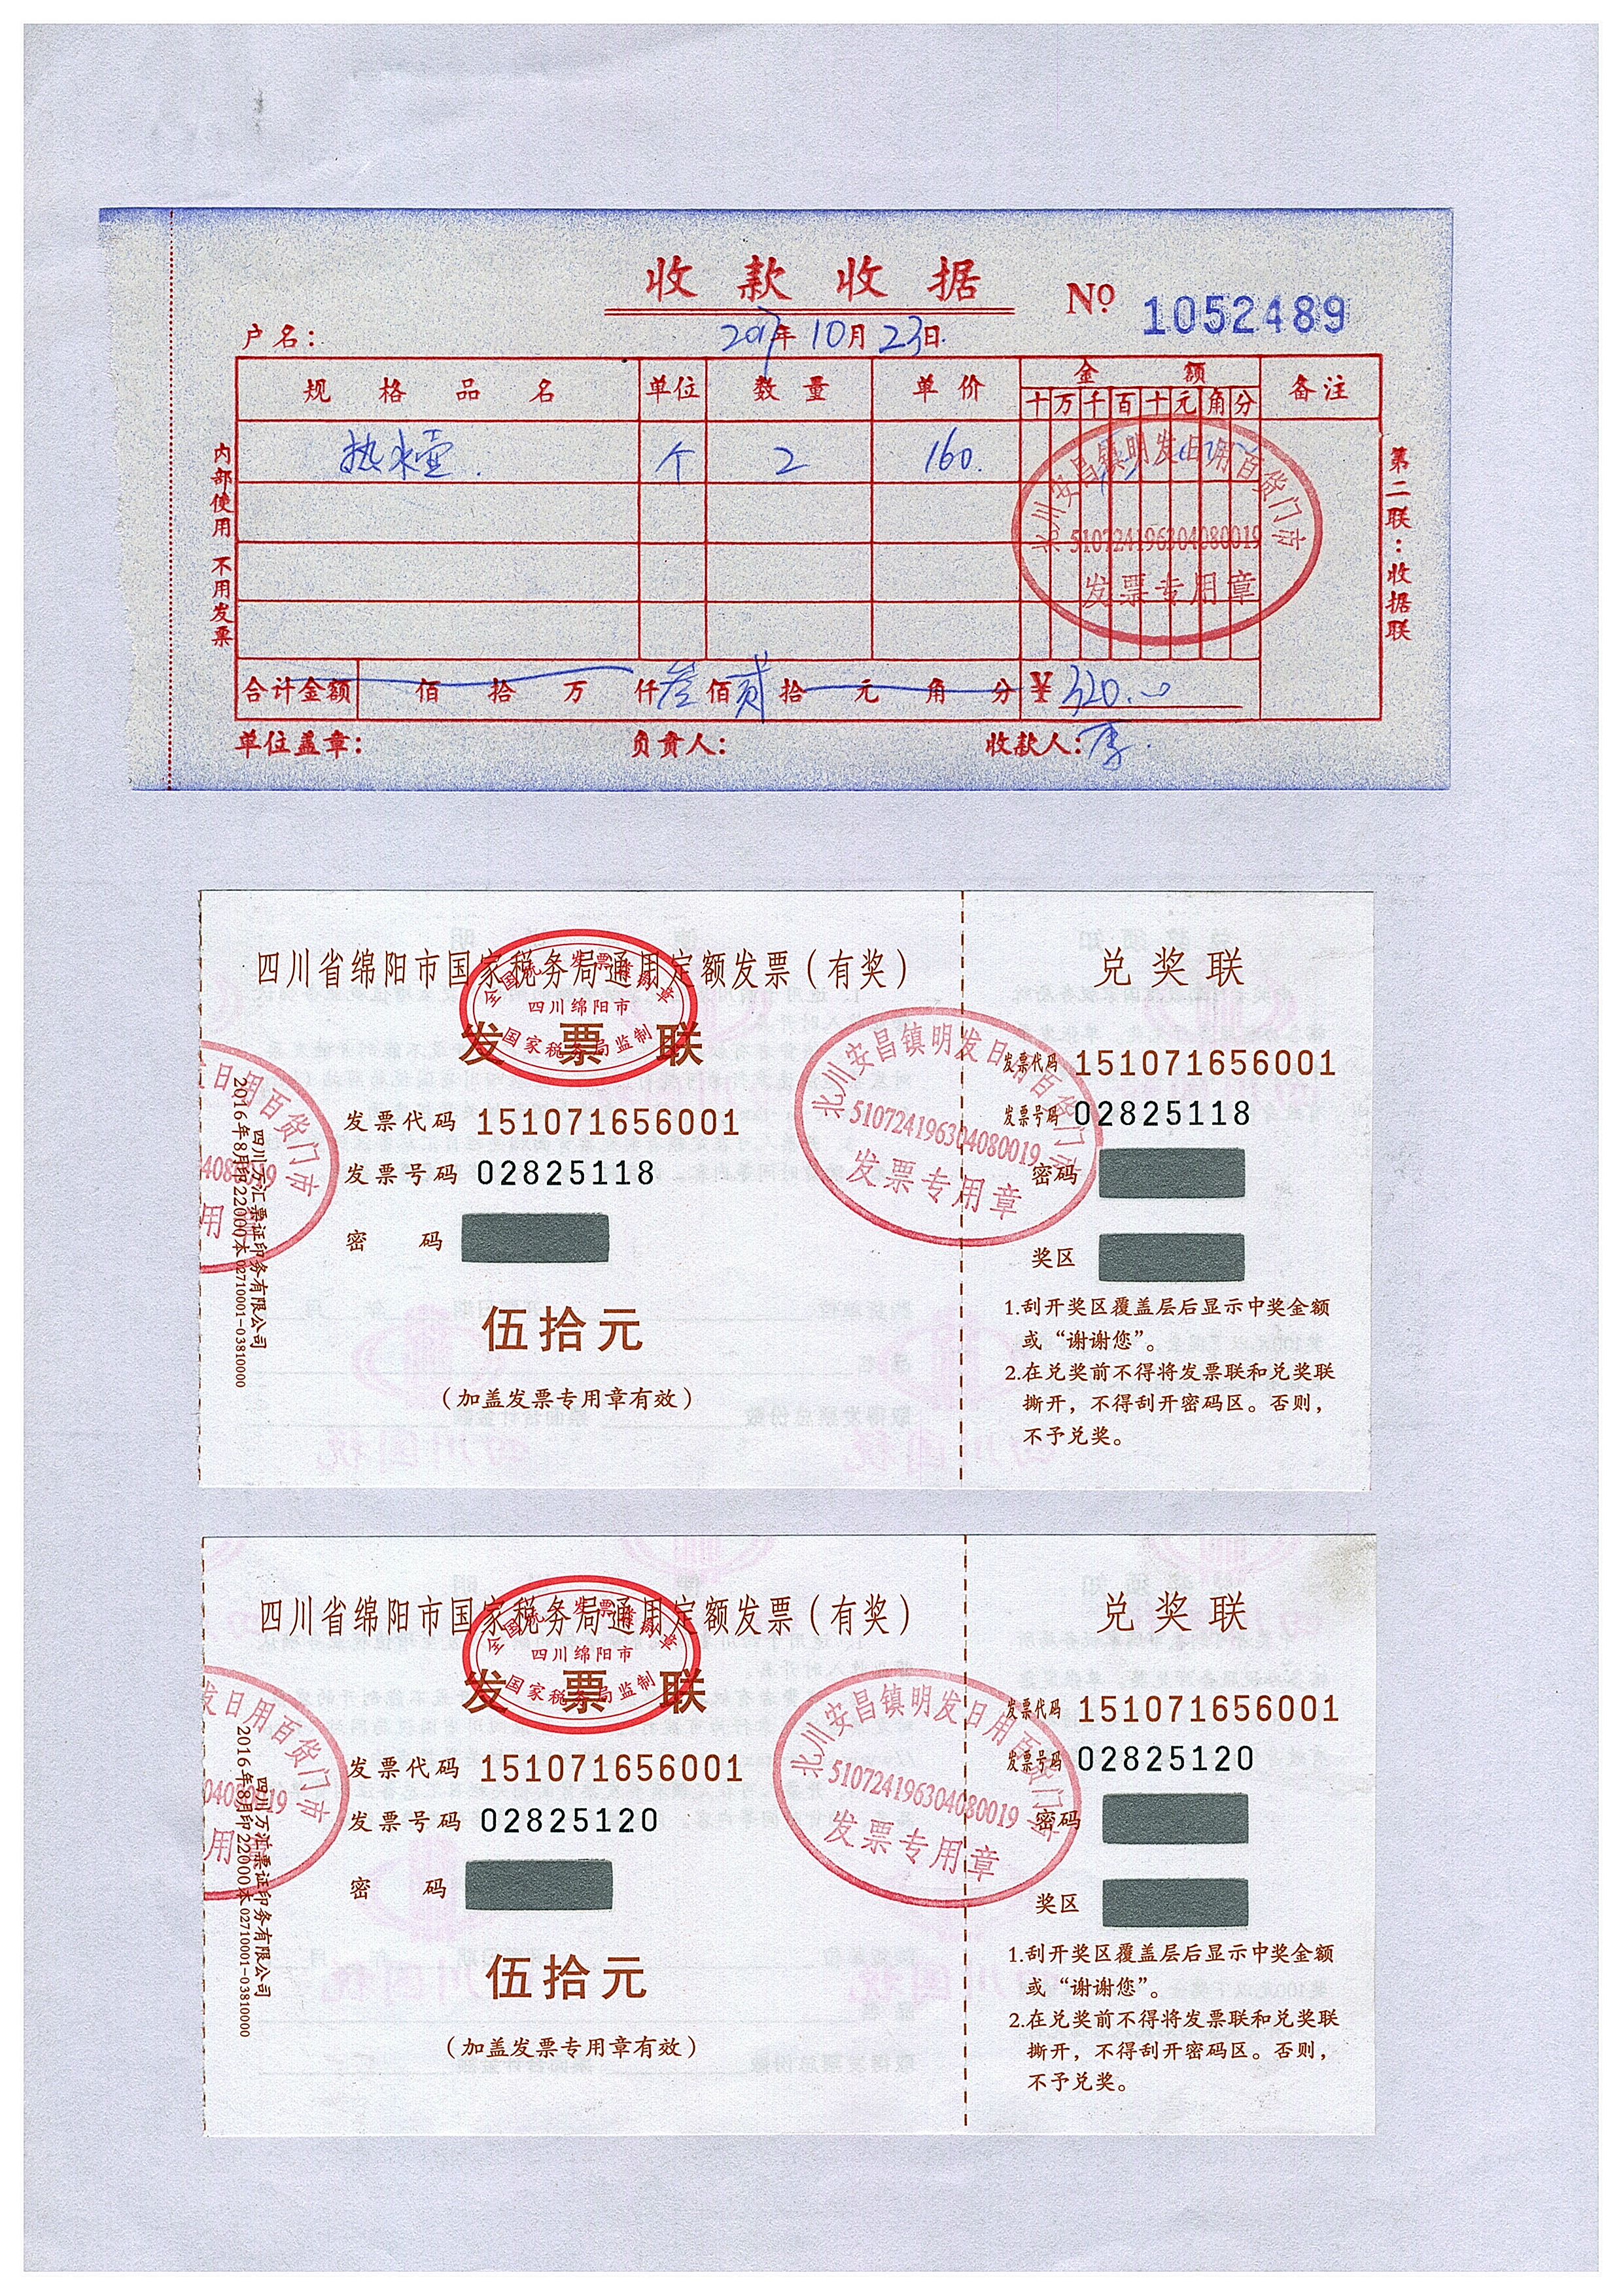 收款收据
No 1052489
户名：
2017年10月23日
规格品名 单位 数量 单价 金额 备注
十 万 千 百 十 元 角 分
热水壶 个 2 160.
内部使用 不用发票
第二联：收据联
北川安昌镇明发日用百货门市
510724196304080019
发票专用章
合计金额 佰 拾 万 仟叁佰贰拾 元 角 分 ¥320.00
单位盖章： 负责人： 收款人：李.
四川省绵阳市国家税务局通用定额发票（有奖）
全国统一发票监制章
四川绵阳市
国家税务局监制
发票联
发票代码 151071656001
发票号码 02825118
密码
伍拾元
（加盖发票专用章有效）
日用百货门市
四川万汇票证印务有限公司
2016年8月印22000本02710001-03810000
北川安昌镇明发日用百货门市
510724196304080019
发票专用章
兑奖联
发票代码 151071656001
发票号码 02825118
密码
奖区
1.刮开奖区覆盖层后显示中奖金额
或“谢谢您”。
2.在兑奖前不得将发票联和兑奖联
撕开，不得刮开密码区。否则，
不予兑奖。
四川省绵阳市国家税务局通用定额发票（有奖）
全国统一发票监制章
四川绵阳市
国家税务局监制
发票联
发票代码 151071656001
发票号码 02825120
密码
伍拾元
（加盖发票专用章有效）
发日用百货门市
四川万汇票证印务有限公司
2016年8月印22000本02710001-03810000
北川安昌镇明发日用百货门市
510724196304080019
发票专用章
兑奖联
发票代码 151071656001
发票号码 02825120
密码
奖区
1.刮开奖区覆盖层后显示中奖金额
或“谢谢您”。
2.在兑奖前不得将发票联和兑奖联
撕开，不得刮开密码区。否则，
不予兑奖。